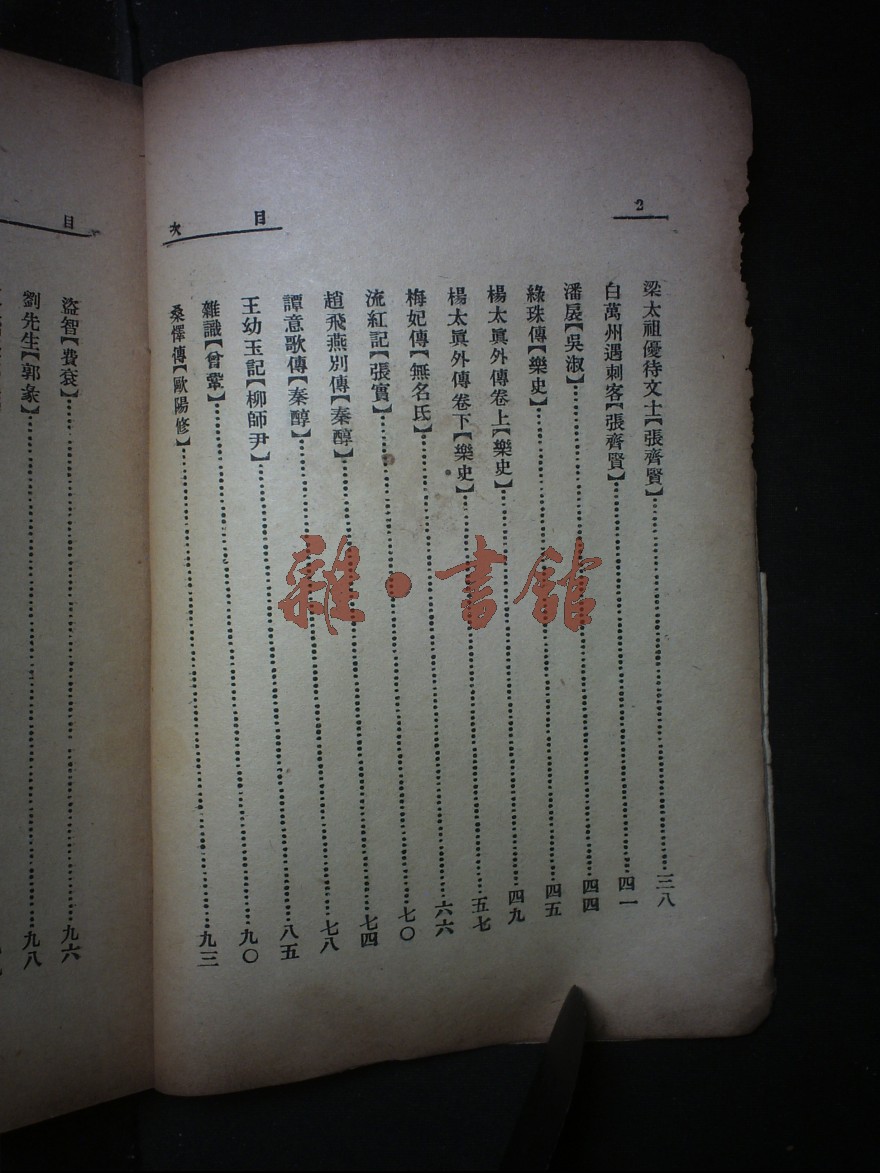 2
目次
梁太祖優待文士【張齊賢】……三八
白萬州遇刺客【張齊賢】……四一
潘扆【吳淑】……四四
綠珠傳【樂史】……四五
楊太眞外傳卷上【樂史】……四九
楊太眞外傳卷下【樂史】……五七
梅妃傳【無名氏】……六六
流紅記【張實】……七〇
趙飛燕別傳【秦醇】……七四
譚意歌傳【秦醇】……七八
王幼玉記【柳師尹】……八五
雜識【曾鞏】……九〇
桑懌傳【歐陽修】……九三
目
盜智【費袞】……九六
劉先生【郭彖】……九八
雜·書館